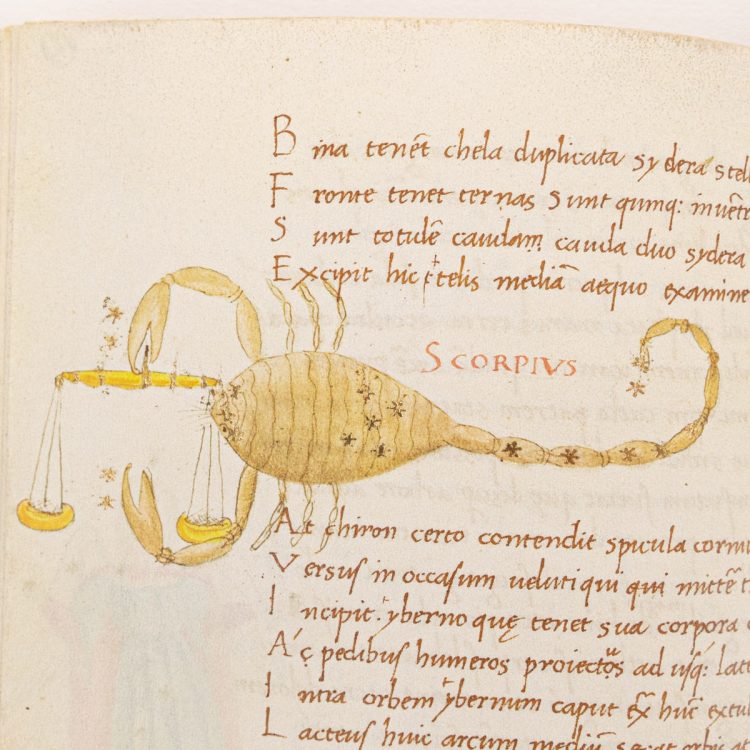 B ina tenēt chela duplicata sydera stel
F ronte tenet ternas sunt qumq: inuētr
S unt totulē caudam cauda duo sydera
E xcipit hic telis mediā aequo examine
SCORPIVS
A t chiron certo contendit spicula cornu
V ersus in occasum ueluti qui qui mittē t
I ncipit yberno quę tenet sua corpora
A c pedibus humeros proiectos ad usq: late
I ntra orbem ybernum caput ex huic extul
L acteus huic arcum mediū secat orbis at